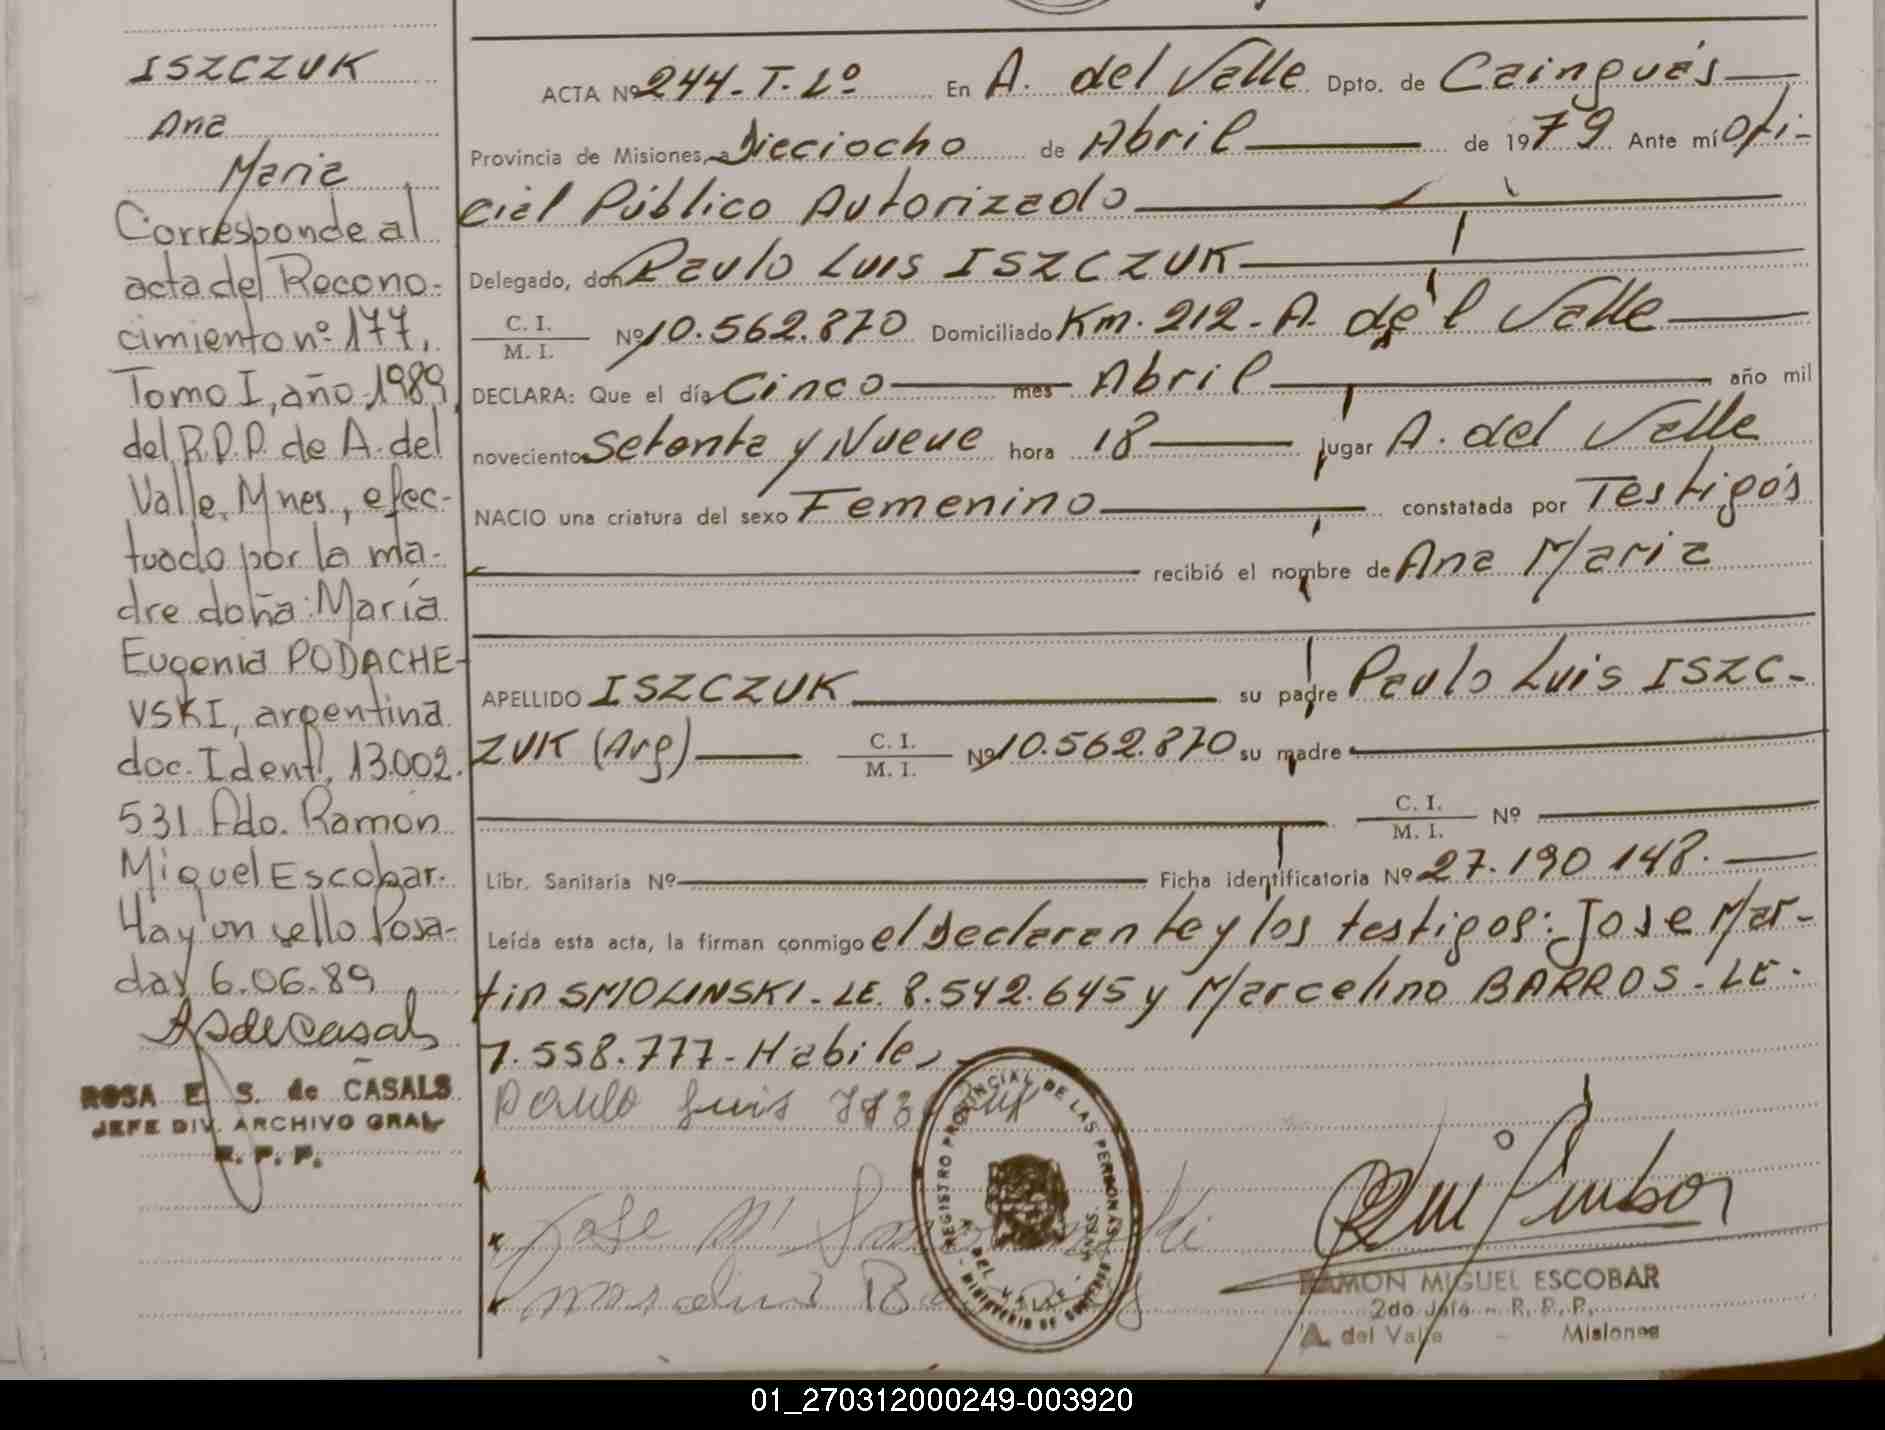 ISZCZUK
Ana
Maria
Corresponde al
acta del Recono-
cimiento nº 177,
Tomo I, año 1989,
del R.P.P. de A. del
Valle, Mnes., efec-
tuado por la ma-
dre doña: María
Eugenia PODACHE-
VSKI, argentina
doc. Ident. 13.002.
531 Fdo. Ramon
Miguel Escobar.
Hay un sello Posa-
das 6.06.89
ROSA E. S. de CASALS
JEFE DIV. ARCHIVO GRAL
R. P. P.
ACTA Nº 244-T. Iº En A. del Valle Dpto. de Cainguás
Provincia de Misiones, a Dieciocho de Abril de 1979 Ante mí Ofi-
cial Público Autorizado
Delegado, don Paulo Luis ISZCZUK
C. I.
M. I. Nº 10.562.870 Domiciliado Km. 212 - A. del Valle
DECLARA: Que el día Cinco mes Abril año mil
novecientos Setenta y Nueve hora 18 lugar A. del Valle
NACIO una criatura del sexo Femenino constatada por Testigos
recibió el nombre de Ana Maria
APELLIDO ISZCZUK su padre Paulo Luis ISZC-
ZUK (Arg) C. I.
M. I. Nº 10.562.870 su madre
C. I.
M. I. Nº
Libr. Sanitaria Nº Ficha identificatoria Nº 27.190 148.
Leída esta acta, la firman conmigo el Declarante y los testigos: Jose Mar-
tin SMOLINSKI - LE. 8.542.645 y Marcelino BARROS - LE.
7.558.777 - Habiles
Paulo Luis
REGISTRO PROVINCIAL DE LAS PERSONAS
A. DEL VALLE - MNES.
MINISTERIO DE GOBIERNO
Jose M Smolinski
RAMON MIGUEL ESCOBAR
2do Jefe - R. P. P.
A. del Valle - Misiones
01_270312000249-003920